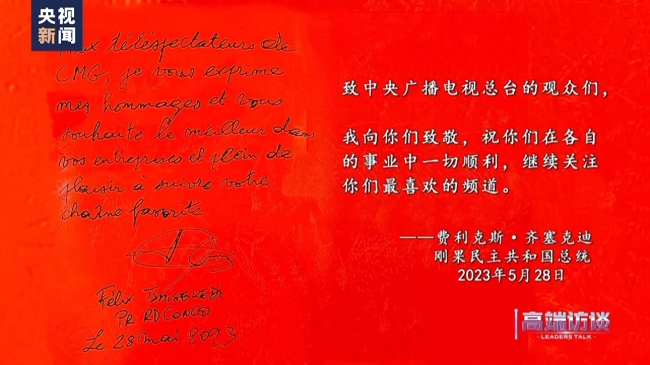 央视
新闻
Aux téléspectateurs de
CMG, je vous exprime
mes hommages et vous
souhaite le meilleur dans
vos entreprises et plein de
plaisir à suivre votre
chaîne favorite
Félix TSHISEKEDI
PR RD CONGO
Le 28 mai 2023
致中央广播电视总台的观众们，
我向你们致敬，祝你们在各自
的事业中一切顺利，继续关注
你们最喜欢的频道。
——费利克斯·齐塞克迪
刚果民主共和国总统
2023年5月28日
高端访谈
LEADERS TALK